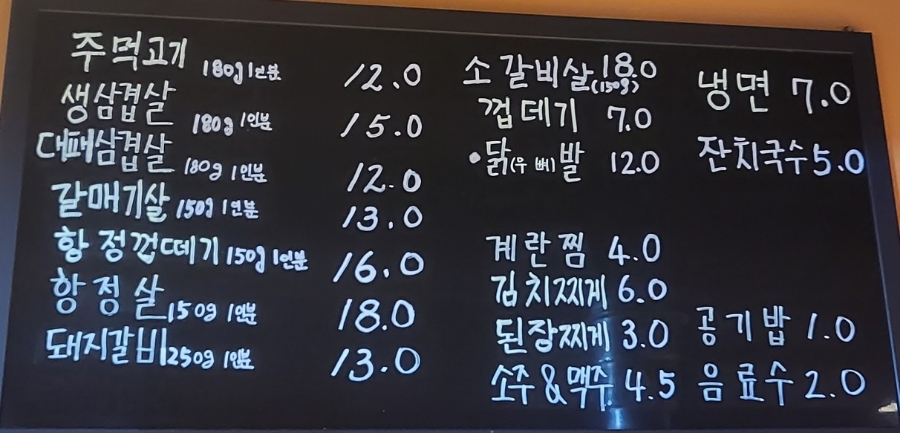 주먹고기 180g 1인분 12.0
생삼겹살 180g 1인분 15.0
대패삼겹살 180g 1인분 12.0
갈매기살 150g 1인분 13.0
항정껍데기 150g 1인분 16.0
항정살 150g 1인분 18.0
돼지갈비 250g 1인분 13.0
소갈비살 (150g) 18.0
껍데기 7.0
•닭(우 뼈)발 12.0
계란찜 4.0
김치찌게 6.0
된장찌게 3.0
소주&맥주 4.5
냉면 7.0
잔치국수 5.0
공기밥 1.0
음료수 2.0